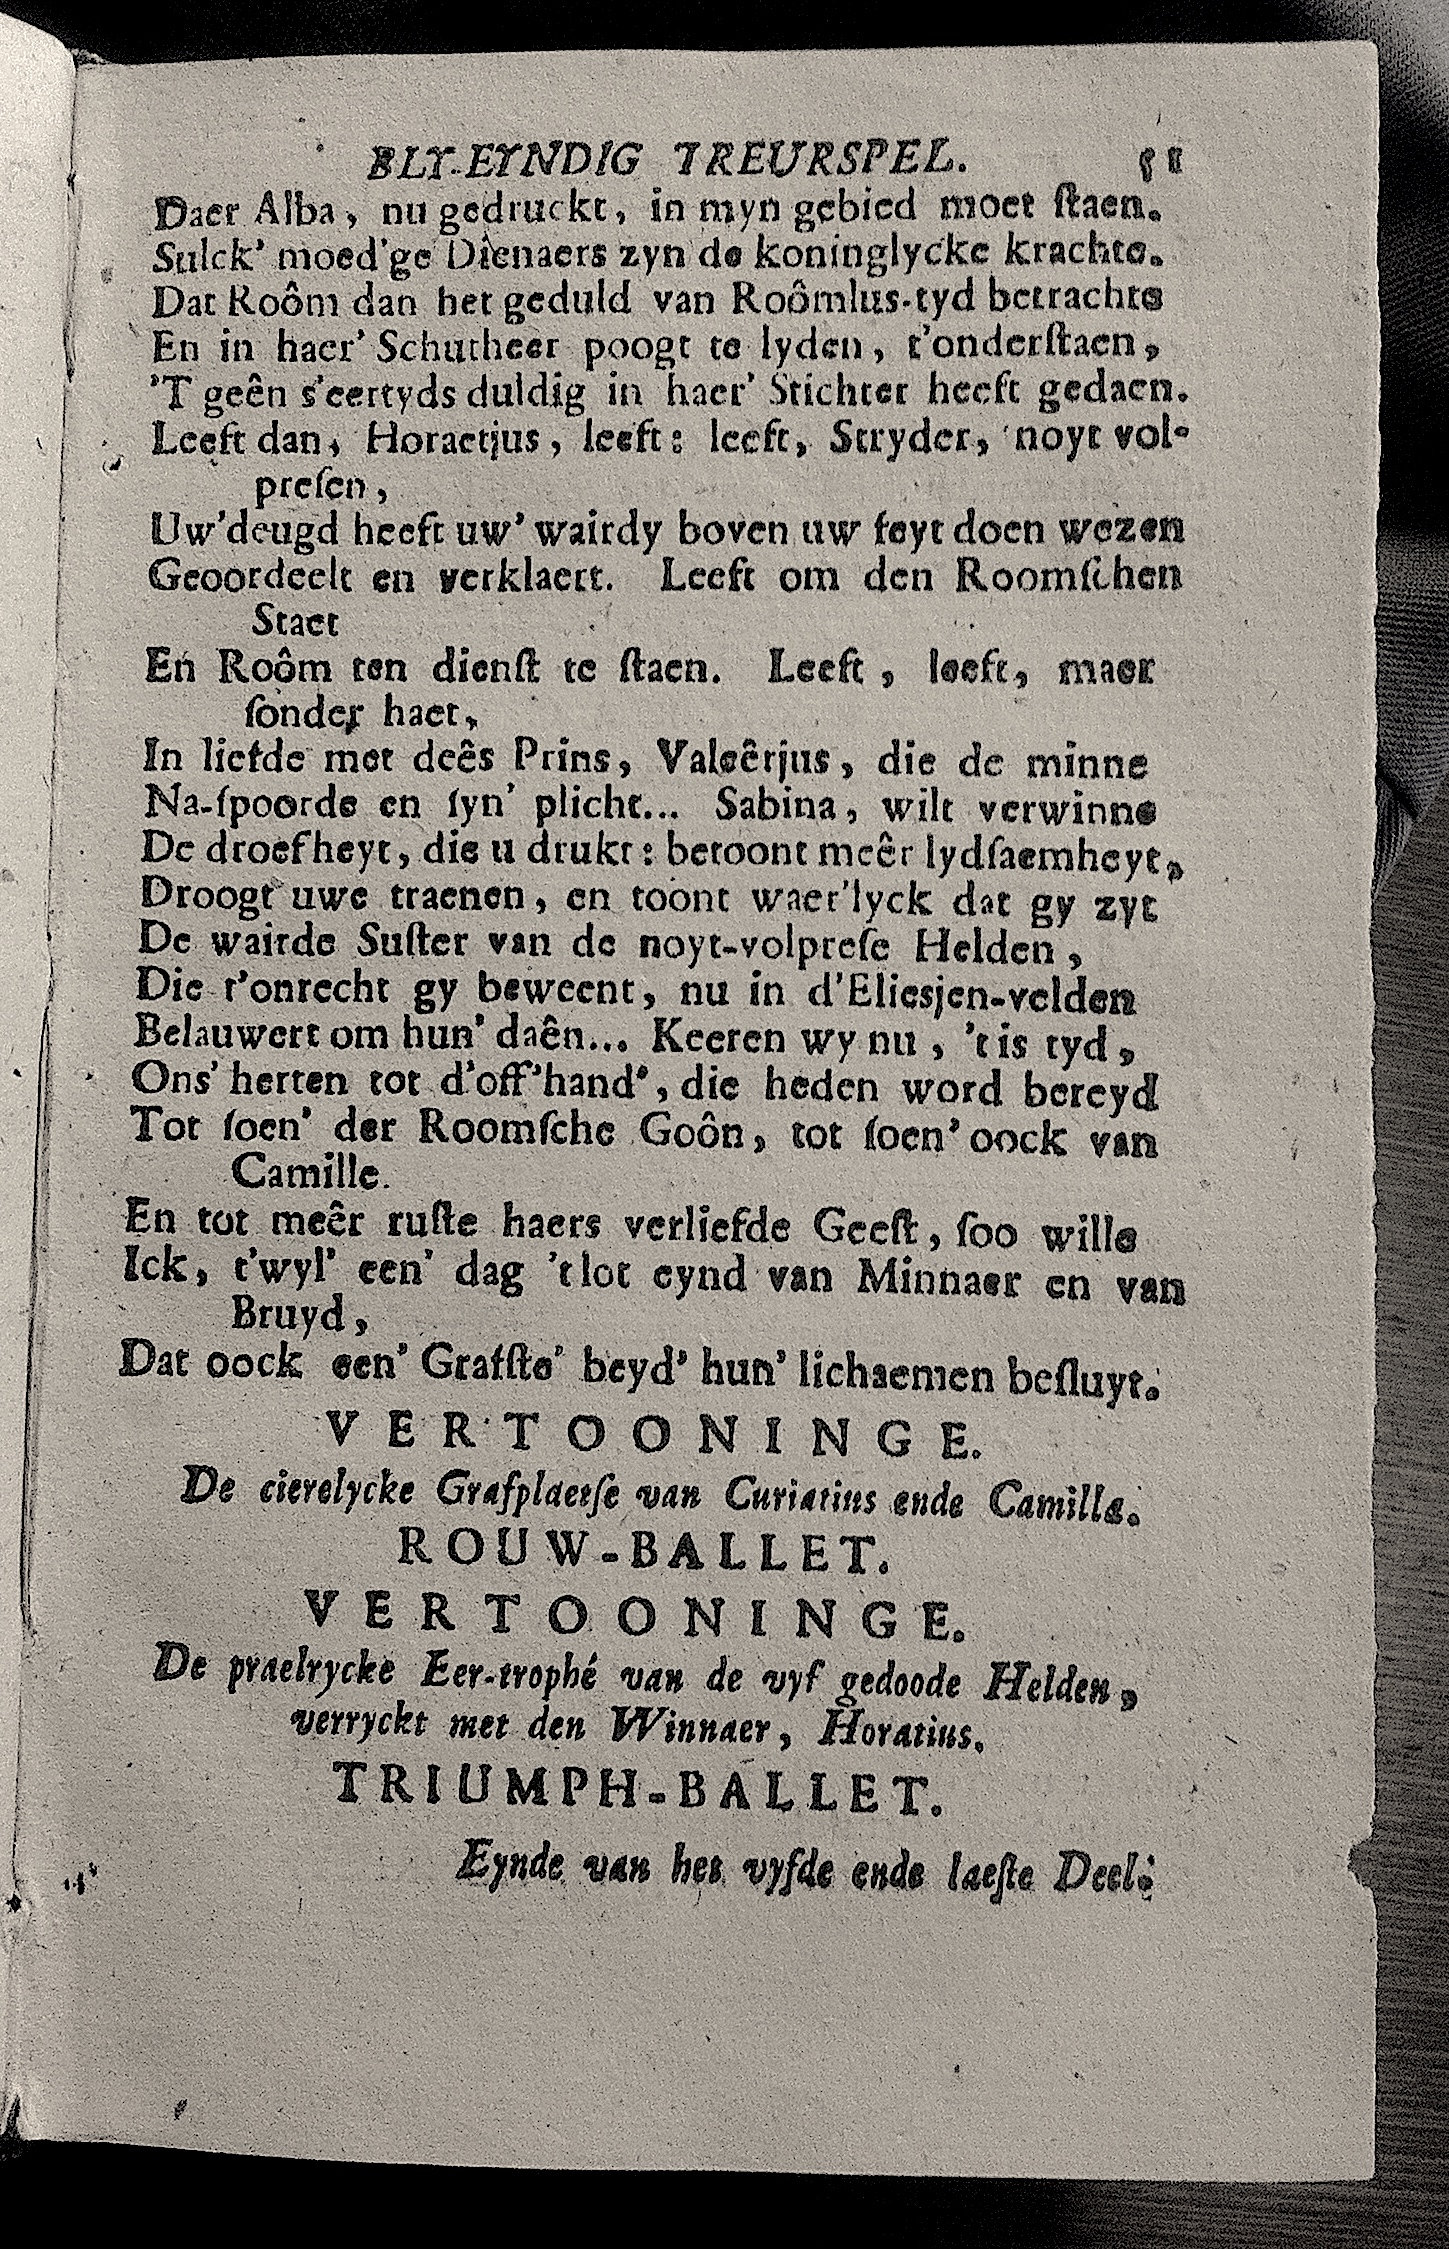 BLY-EYNDIG TREURSPEL. 51
Daer Alba, nu gedruckt, in myn gebied moet ſtaen.
Sulck' moed'ge Dienaers zyn de koninglycke krachte.
Dat Roôm dan het geduld van Roômlus-tyd betrachte
En in haer' Schutheer poogt te lyden, t'onderſtaen,
'T geên s'eertyds duldig in haer' Stichter heeft gedaen.
Leeft dan, Horaetjus, leeft: leeft, Stryder, noyt vol-
preſen,
Uw'deugd heeft uw' wairdy boven uw feyt doen wezen
Geoordeelt en verklaert. Leeft om den Roomſchen
Staet
En Roôm ten dienſt te ſtaen. Leeft, leeft, maer
ſonder haet,
In liefde met deês Prins, Valeêrjus, die de minne
Na-ſpoorde en ſyn' plicht... Sabina, wilt verwinne
De droefheyt, die u drukt: betoont meêr lydſaemheyt,
Droogt uwe traenen, en toont waer'lyck dat gy zyt
De wairde Suſter van de noyt-volpreſe Helden,
Die t'onrecht gy beweent, nu in d'Eliesjen-velden
Belauwert om hun' daên... Keeren wy nu, 't is tyd,
Ons' herten tot d'off'hand', die heden word bereyd
Tot ſoen' der Roomſche Goôn, tot ſoen' oock van
Camille.
En tot meêr ruſte haers verliefde Geeſt, ſoo wille
Ick, t'wyl' een' dag 't lot eynd van Minnaer en van
Bruyd,
Dat oock een' Grafſte' beyd' hun' lichaemen beſluyt.
VERTOONINGE.
De cierelycke Grafplaetſe van Curiatius ende Camilla.
ROUW-BALLET.
VERTOONINGE.
De praelrycke Eer-trophé van de vyf gedoode Helden,
verryckt met den Winnaer, Horatius.
TRIUMPH-BALLET.
Eynde van het vyfde ende laeſte Deel.